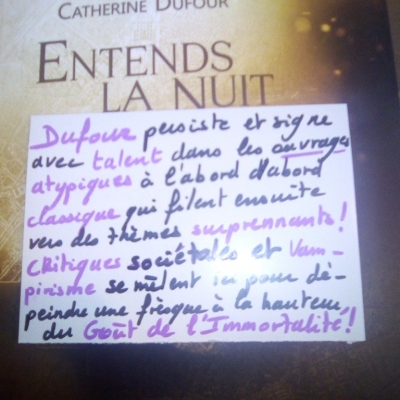 CATHERINE DUFOUR
ENTENDS
LA NUIT
Dufour persiste et signe
avec talent dans les ouvrages
atypiques à l'abord d'abord
classique qui filent ensuite
vers des thèmes surprennants !
Critiques sociétales et Vam-
pirisme se mêlent ici pour dé-
peindre une fresque à la hauteur
du Goût de l'Immortalité !